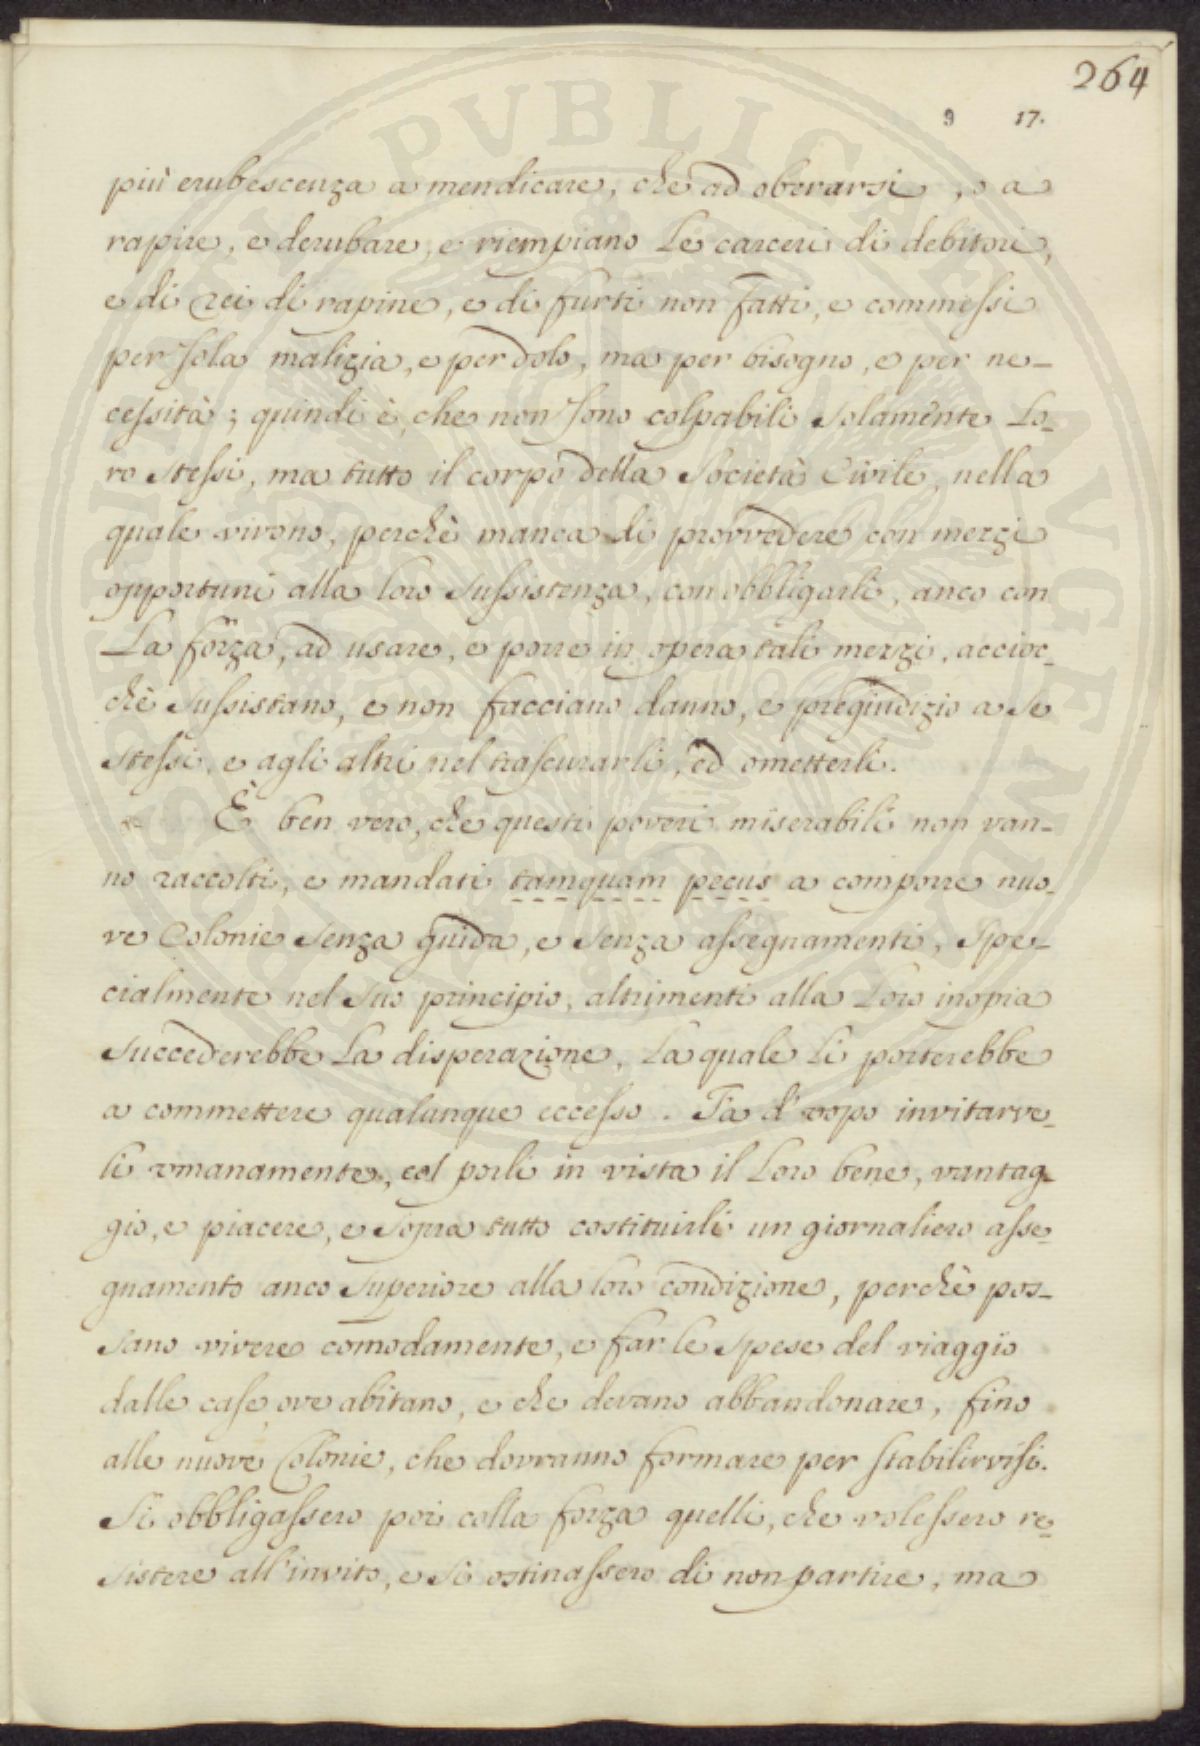 264
9 17.
più erubescenza a mendicare, che ad oberarsi, o a
rapire, e derubare, e riempiano le carceri di debitori,
e di rei di rapine, e di furti non fatti, e commessi
per sola malizia, e per dolo, ma per bisogno, e per ne-
cessità; quindi è, che non sono colpabili solamente lo-
ro stessi, ma tutto il corpo della Società Civile, nella
quale vivono, perchè manca di provvedere con mezzi
opportuni alla loro sussistenza, con obbligarli, anco con
la forza, ad usare, e porre in opera tali mezzi, accioc-
chè sussistano, e non facciano danno, e pregiudizio a se
stessi, e agli altri nel trascurarli, ed ometterli.
È ben vero, che questi poveri miserabili non van-
no raccolti, e mandati tamquam pecus a comporre nuo-
ve Colonie senza guida, e senza assegnamenti, spe-
cialmente nel suo principio, altrimenti alla loro inopia
succederebbe la disperazione, la quale li porterebbe
a commettere qualunque eccesso. Fa d'uopo invitarve-
li umanamente, col porli in vista il loro bene, vantag-
gio, e piacere, e sopra tutto costituirli un giornaliero asse-
gnamento anco superiore alla loro condizione, perchè pos-
sano vivere comodamente, e far le spese del viaggio
dalle case, ove abitano, e che devano abbandonare, fino
alle nuove Colonie, che dovranno formare per stabilirvisi.
Si obbligassero poi colla forza quelli, che volessero re-
sistere all'invito, e si ostinassero di non partire, ma
PUBLICAE AUGENDAE